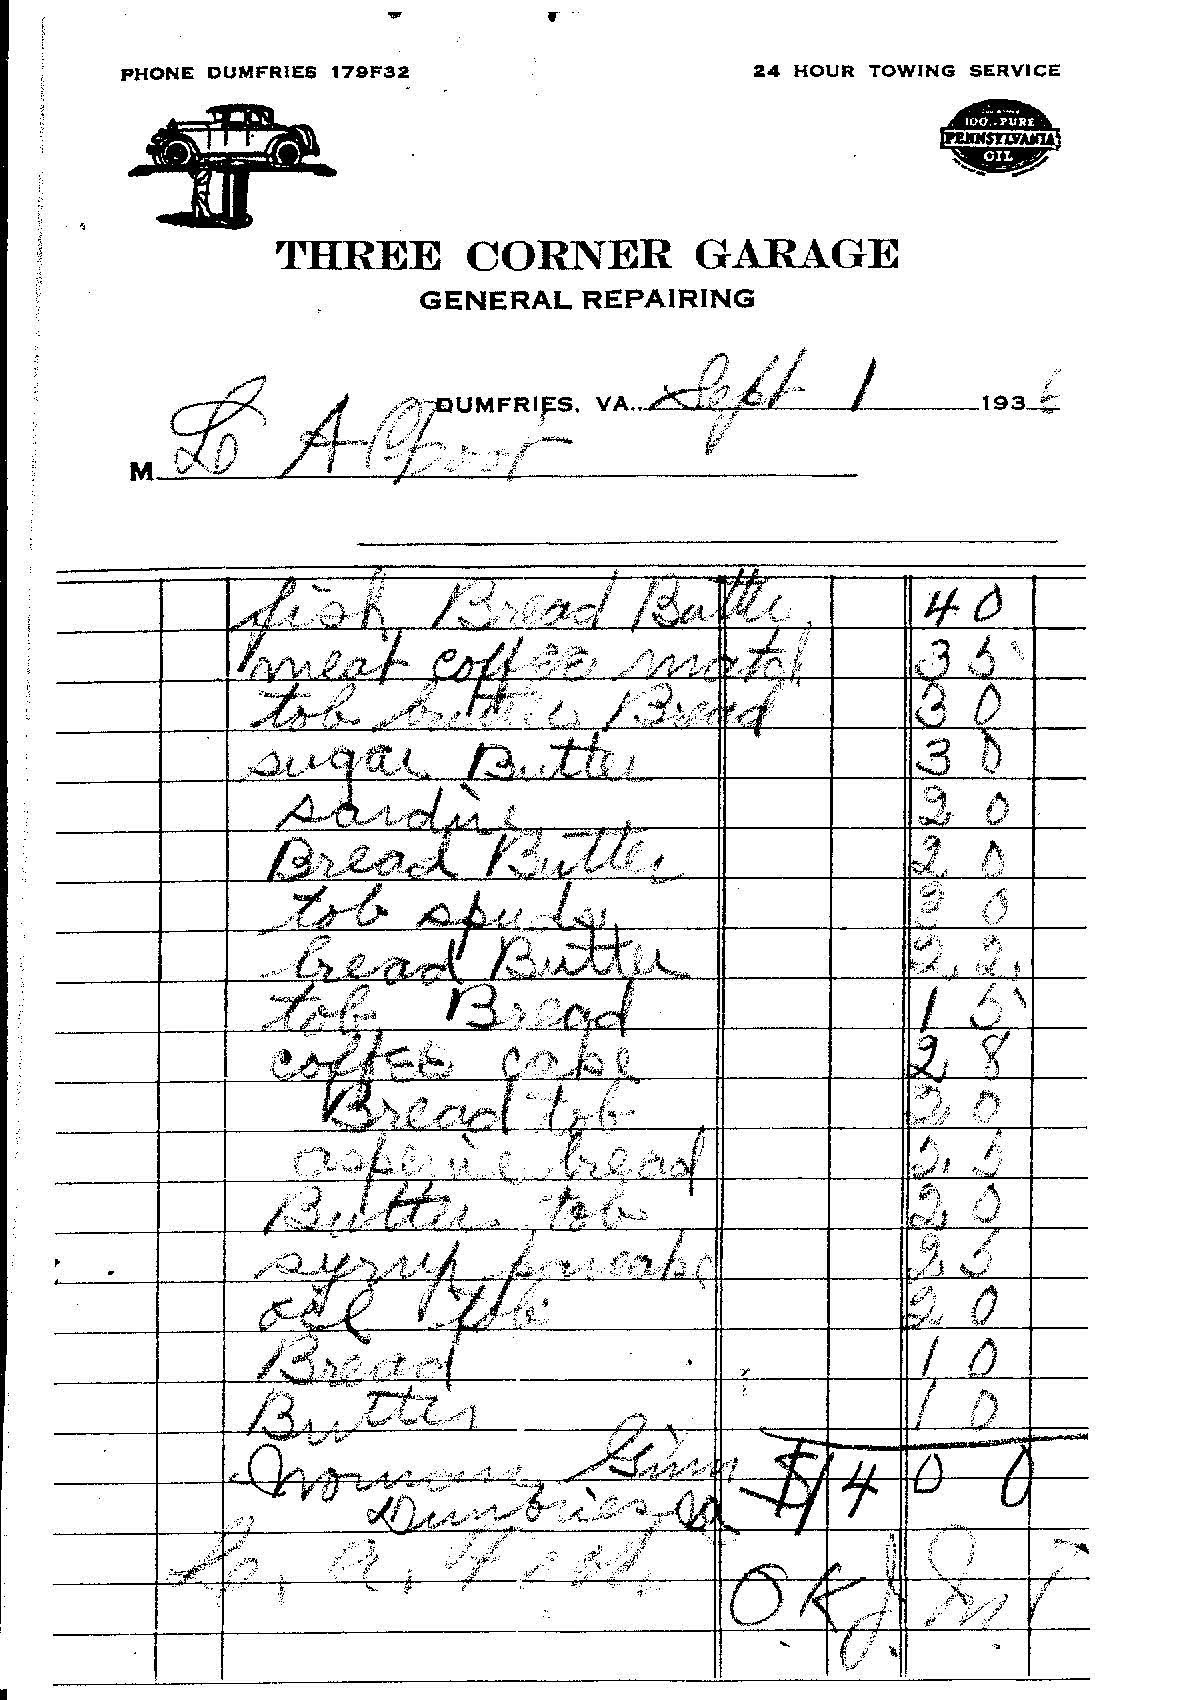 PHONE DUMFRIES 179F32
24 HOUR TOWING SERVICE
100% PURE
PENNSYLVANIA
OIL
THREE CORNER GARAGE
GENERAL REPAIRING
DUMFRIES, VA. Sept 1 1936
M L A
fish Bread Butter 40
meat coffee match 35
tob butter Bread 30
sugar Butter 30
sardine 20
Bread Butter 20
tob spuds 20
bread Butter 22
tob Bread 15
coffee cake 28
Bread tob 20
asperine bread
Butter tob 20
syrup pncake 25
oil tob 20
Bread 10
Butter 10
Norman Ginn $14 00
Dumfries Va
L. A.
O K J. M.